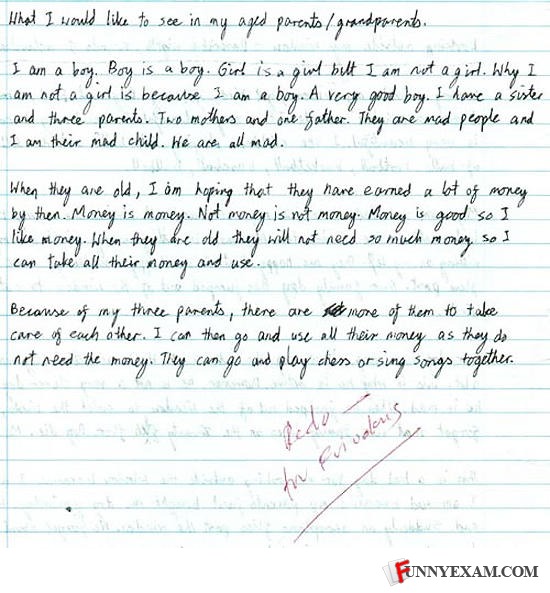 What I would like to see in my aged parents/grandparents.
I am a boy. Boy is a boy. Girl is a girl but I am not a girl. Why I
am not a girl is because I am a boy. A very good boy. I have a sister
and three parents. Two mothers and one father. They are mad people and
I am their mad child. We are all mad.
When they are old, I am hoping that they have earned a lot of money
by then. Money is money. Not money is not money. Money is good so I
like money. When they are old they will not need so much money so I
can take all their money and use.
Because of my three parents, there are more of them to take
care of each other. I can then go and use all their money as they do
not need the money. They can go and play chess or sing songs together.
Redo
FUNNYEXAM.COM